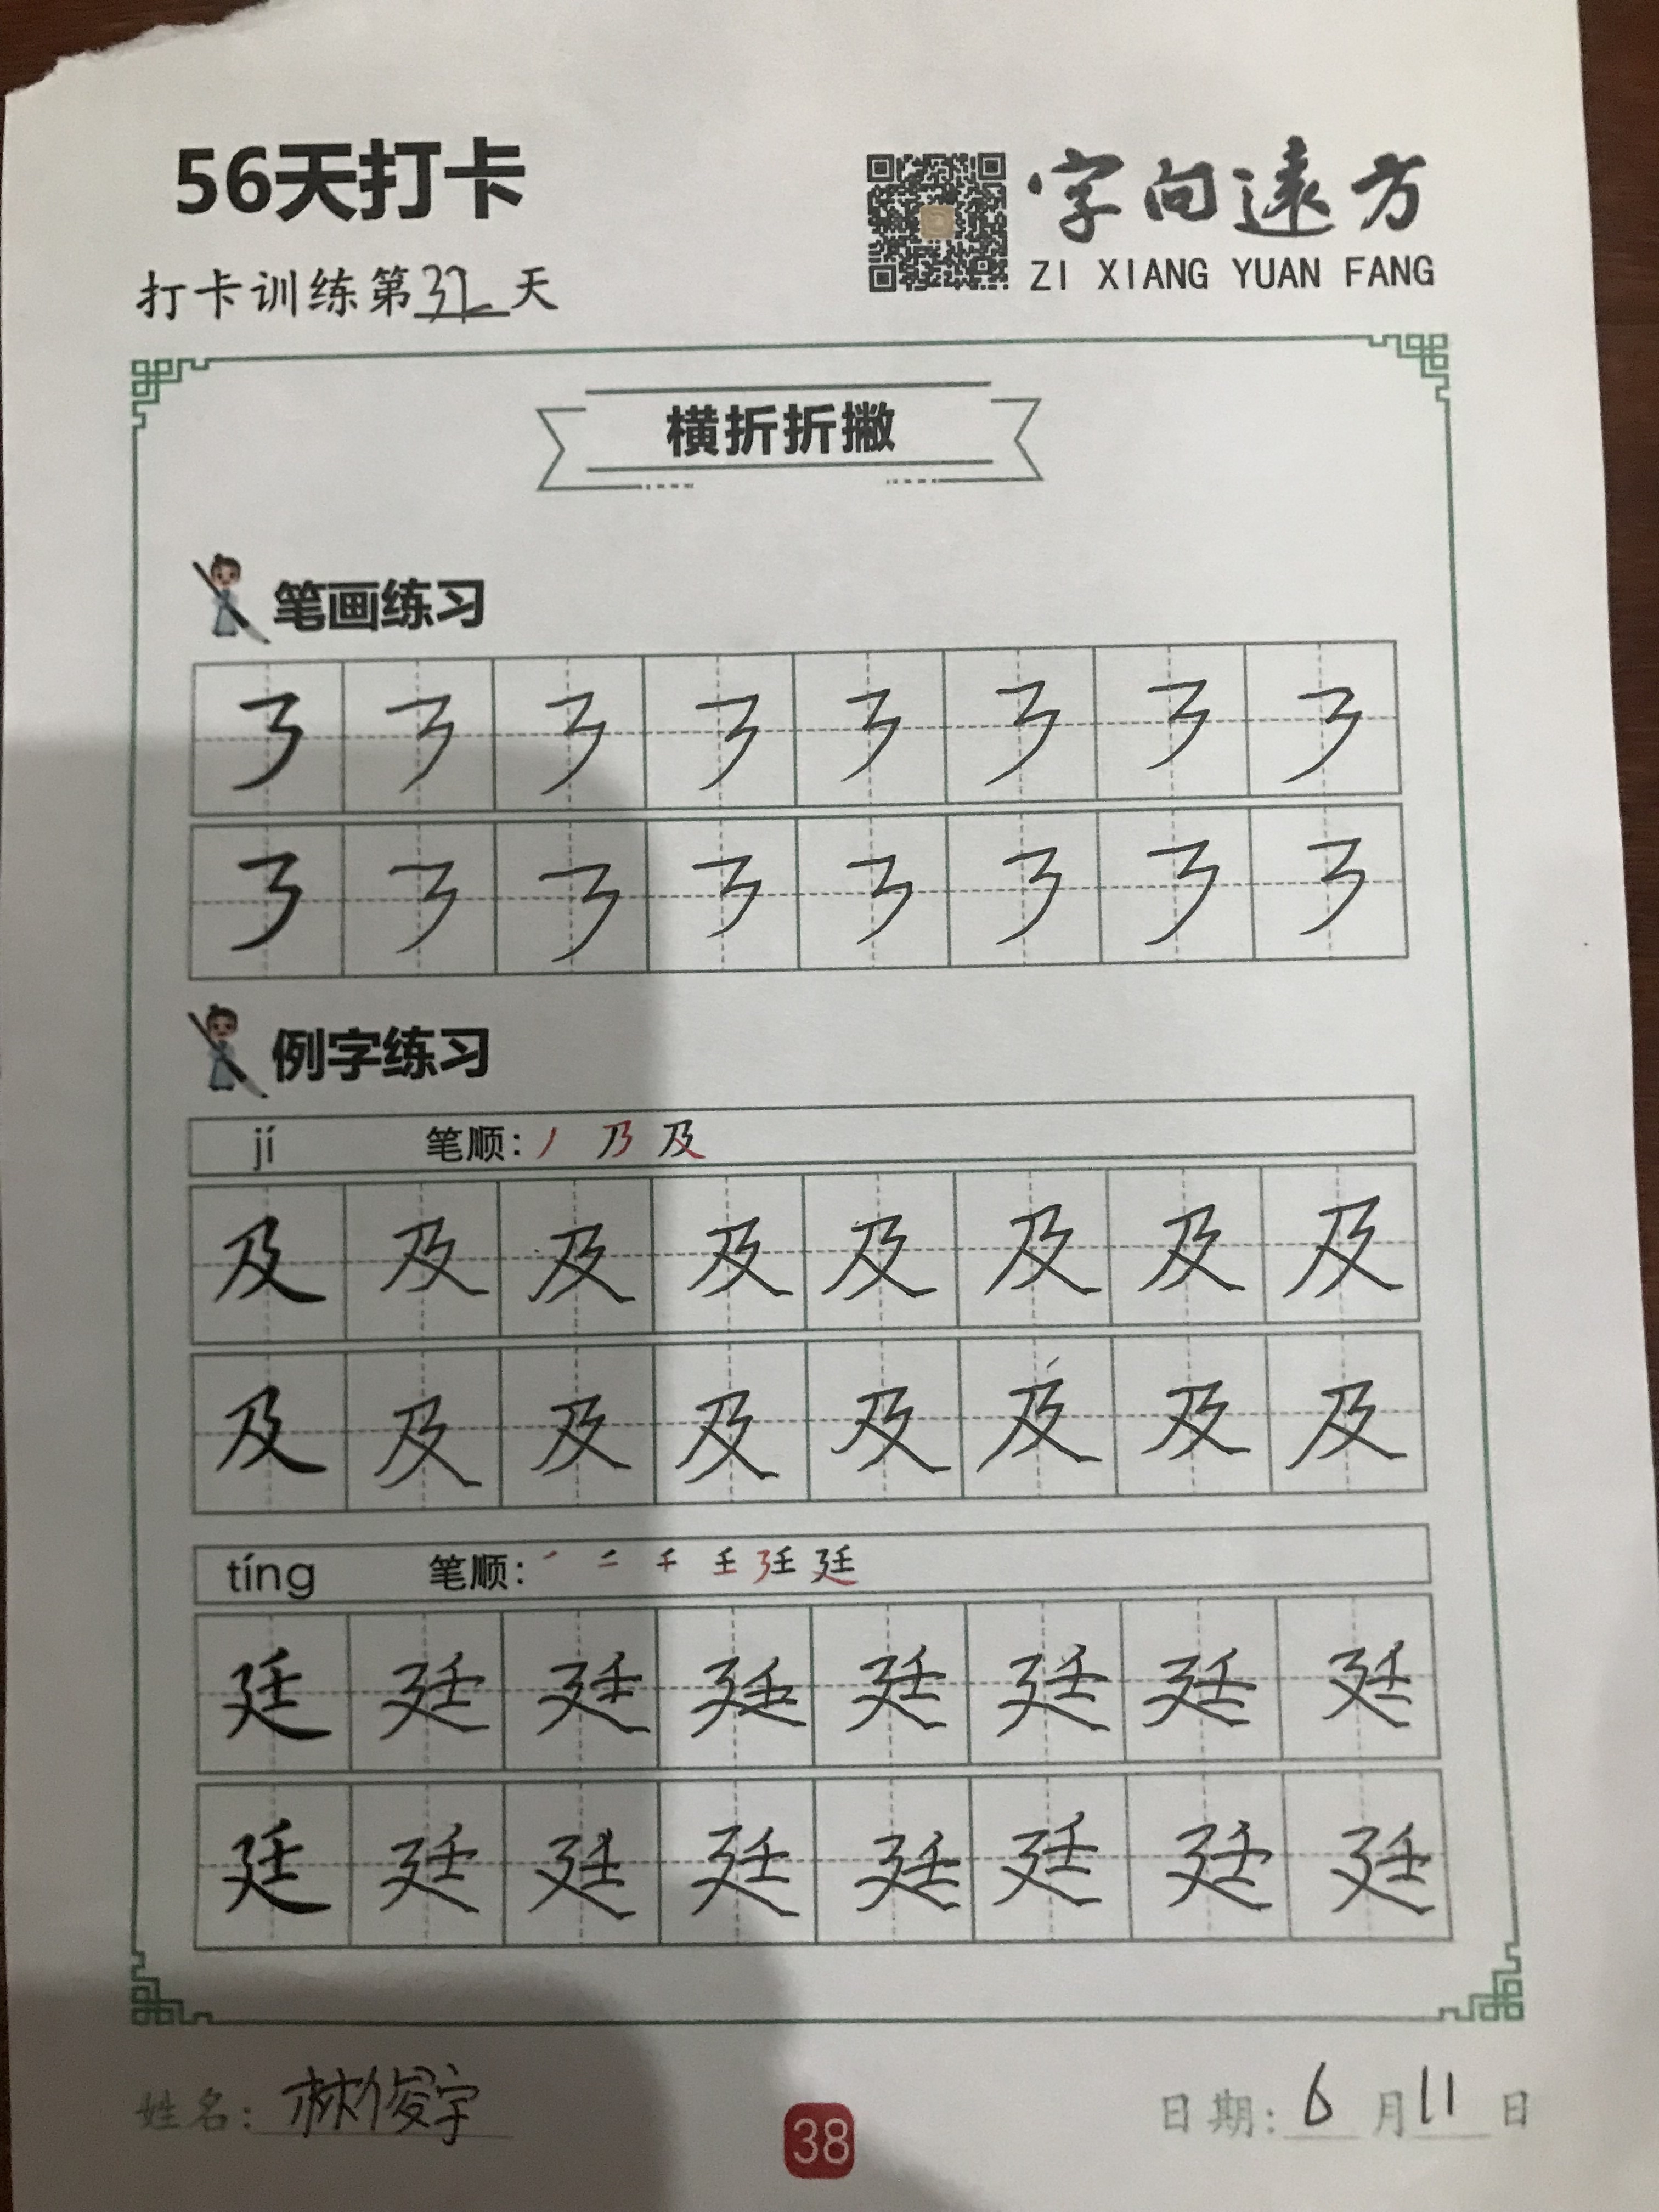 56天打卡
字向遠方
ZI XIANG YUAN FANG
打卡训练第 天
横折折撇
笔画练习
㇋ ㇋ ㇋ ㇋ ㇋ ㇋ ㇋ ㇋
㇋ ㇋ ㇋ ㇋ ㇋ ㇋ ㇋ ㇋
例字练习
jí 笔顺：丿 乃 及
及 及 及 及 及 及 及 及
及 及 及 及 及 及 及 及
tíng 笔顺：
廷 廷 廷 廷 廷 廷 廷 廷
廷 廷 廷 廷 廷 廷 廷 廷
姓名：林俊宇
38
日期：6月11日